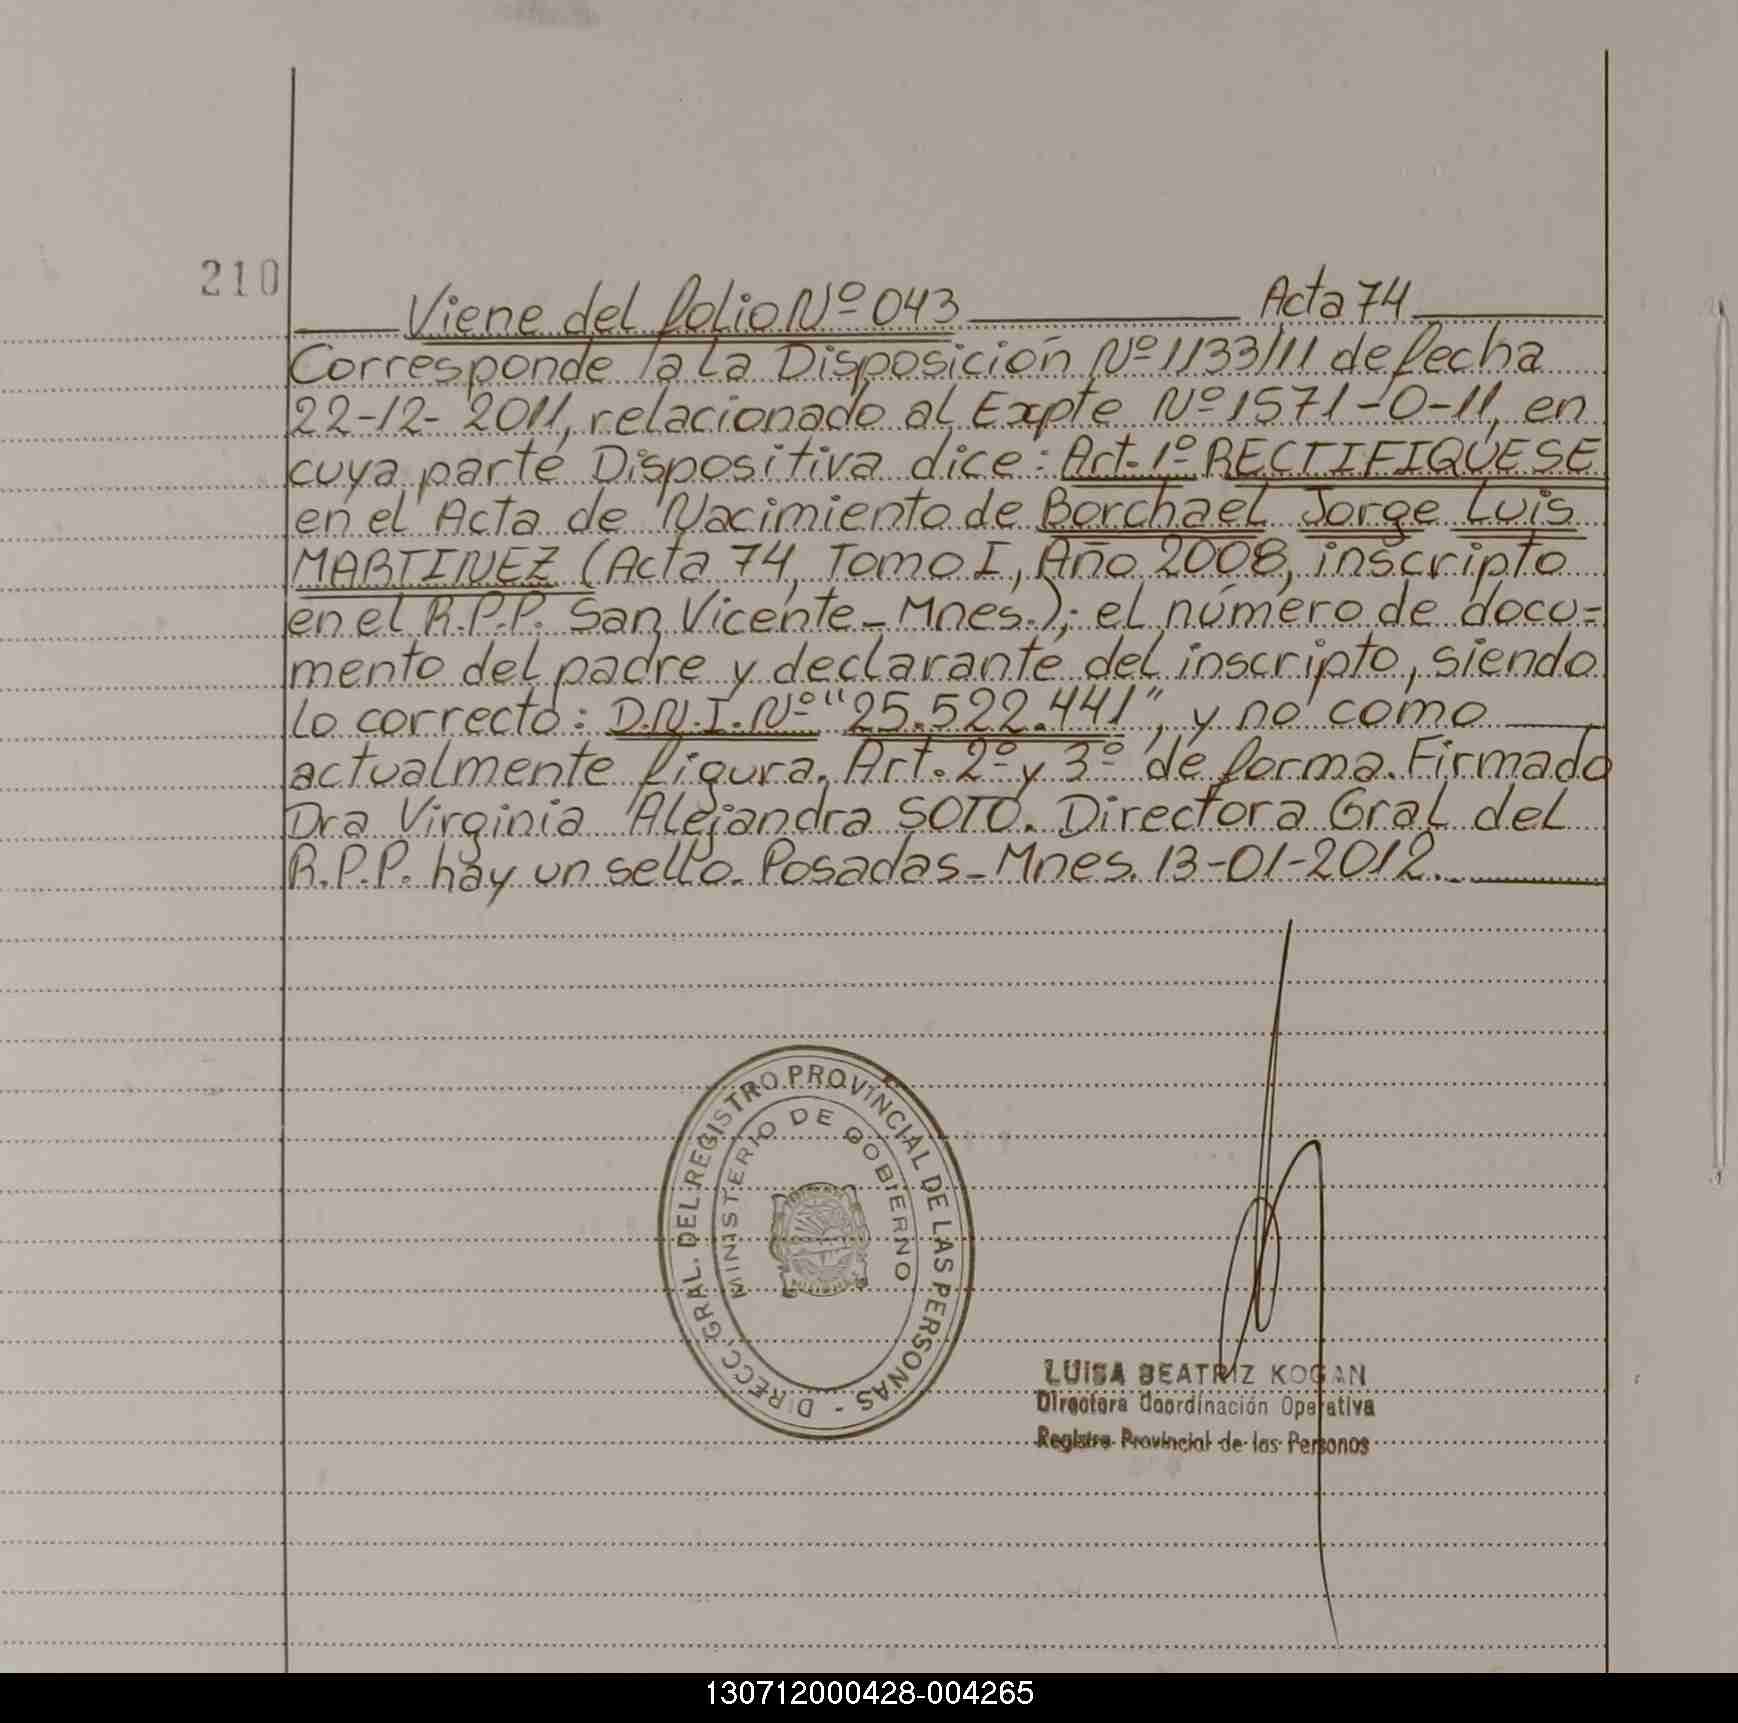 210
Viene del folio Nº 043 Acta 74
Corresponde a la Disposición Nº 1133/11 de fecha
22-12-2011, relacionado al Expte Nº 1571-O-11, en
cuya parte Dispositiva dice: Art. 1º RECTIFIQUESE
en el Acta de Nacimiento de Borchael Jorge Luis
MARTINEZ (Acta 74, Tomo I, Año 2008, inscripto
en el R.P.P. San Vicente-Mnes.); el número de docu=
mento del padre y declarante del inscripto, siendo
lo correcto: D.N.I. Nº "25.522.441", y no como
actualmente figura. Art. 2º y 3º de forma. Firmado
Dra Virginia Alejandra SOTO. Directora Gral del
R.P.P. hay un sello. Posadas-Mnes. 13-01-2012.
DIRECC. GRAL. DEL REGISTRO PROVINCIAL DE LAS PERSONAS -
MINISTERIO DE GOBIERNO
LUISA BEATRIZ KOGAN
Directora Coordinación Operativa
Registro Provincial de las Personas
130712000428-004265